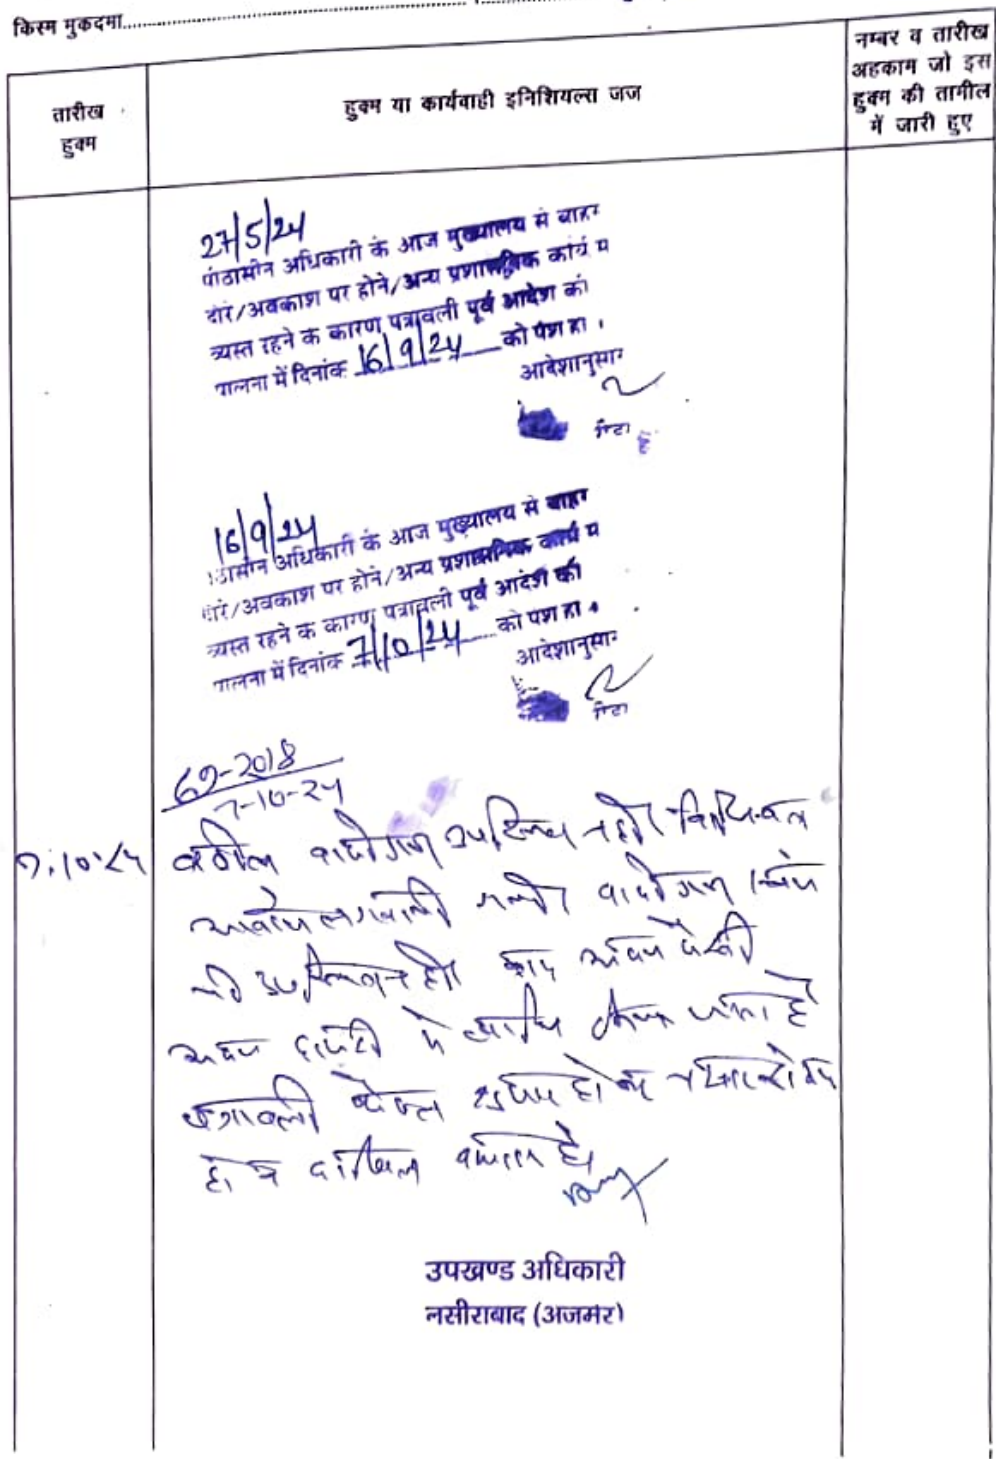 किस्म मुकदमा
तारीख
हुक्म
हुक्म या कार्यवाही इनिशियल्स जज
नम्बर व तारीख
अहकाम जो इस
हुक्म की तामील
में जारी हुए
27/5/24
पीठासीन अधिकारी के आज मुख्यालय से बाहर
दौरे/अवकाश पर होने/अन्य प्रशासनिक कार्य में
व्यस्त रहने के कारण पत्रावली पूर्व आदेश की
पालना में दिनांक 16/9/24 को पेश हो ।
आदेशानुसार
16/9/24
पीठासीन अधिकारी के आज मुख्यालय से बाहर
दौरे/अवकाश पर होने/अन्य प्रशासनिक कार्य में
व्यस्त रहने के कारण पत्रावली पूर्व आदेश की
पालना में दिनांक 7/10/24 को पेश हो ।
आदेशानुसार
69-2018
7-10-24
7.10.24
वकील वादीगण उपस्थित नहीं
वादीगण स्वयं
भी उपस्थित नहीं वाद अदम पैरवी
अदम हाजरी में खारिज किया जाता है
पत्रावली फैसल शुमार होकर
दाखिल दफ्तर हो
उपखण्ड अधिकारी
नसीराबाद (अजमेर)